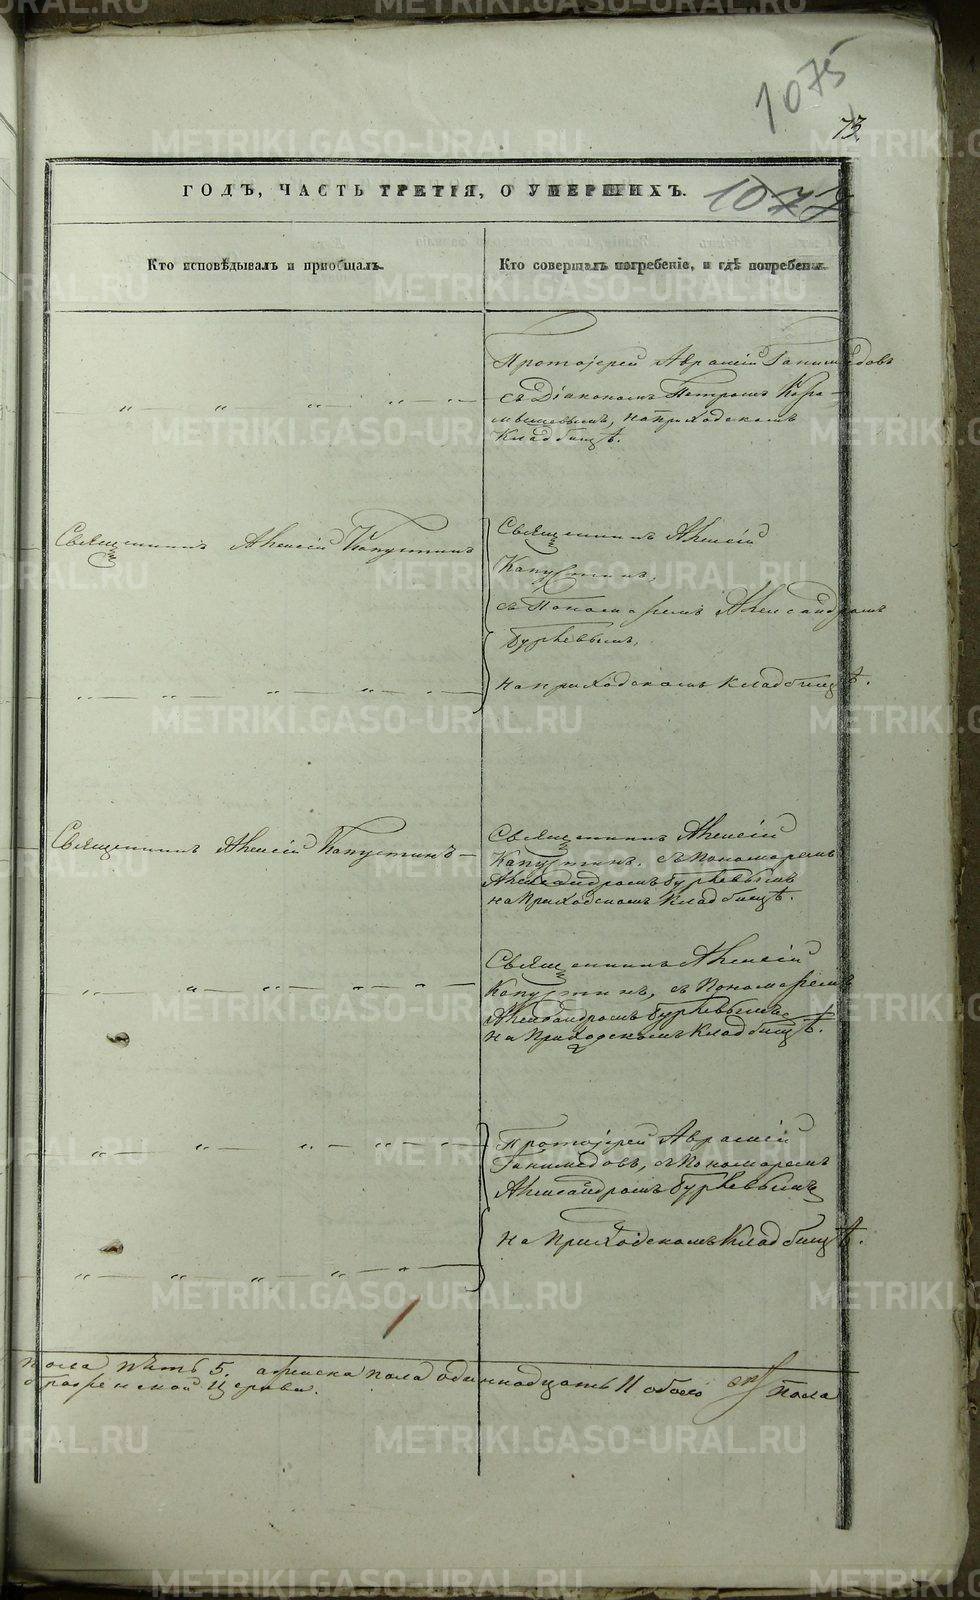 1075
73.
ГОДЪ, ЧАСТЬ ТРЕТІЯ, О УМЕРШИХЪ. 1077
Кто исповѣдывалъ и пріобщалъ.
Кто совершалъ погребеніе, и гдѣ погребены.
Протоіерей Аврамій Ганимедовъ
съ Діакономъ Петромъ Кара-
мышевымъ, на приходскомъ
Кладбищѣ.
Священникъ Алексій Капустинъ
Священникъ Алексій
Капустинъ,
съ Пономаремъ Александромъ
на приходскомъ Кладбищѣ.
Священникъ Алексій Капустинъ
Священникъ Алексій
Капустинъ, съ Пономаремъ
Александромъ
на Приходскомъ Кладбищѣ.
Священникъ Алексій
Капустинъ, съ Пономаремъ
Александромъ
на Приходскомъ Кладбищѣ.
Протоіерей Аврамій
Ганимедовъ, съ Пономаремъ
Александромъ
на Приходскомъ Кладбищѣ.
пола пять 5. а женска пола одиннадцать 11 обоего пола
Церкви.
METRIKI.GASO-URAL.RU